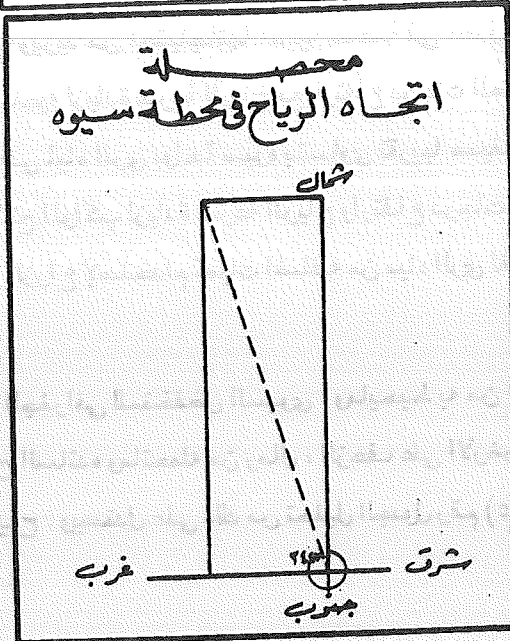 محصلة
اتجاه الرياح فى محطة سيوه
شمال
غرب
شرق
جنوب